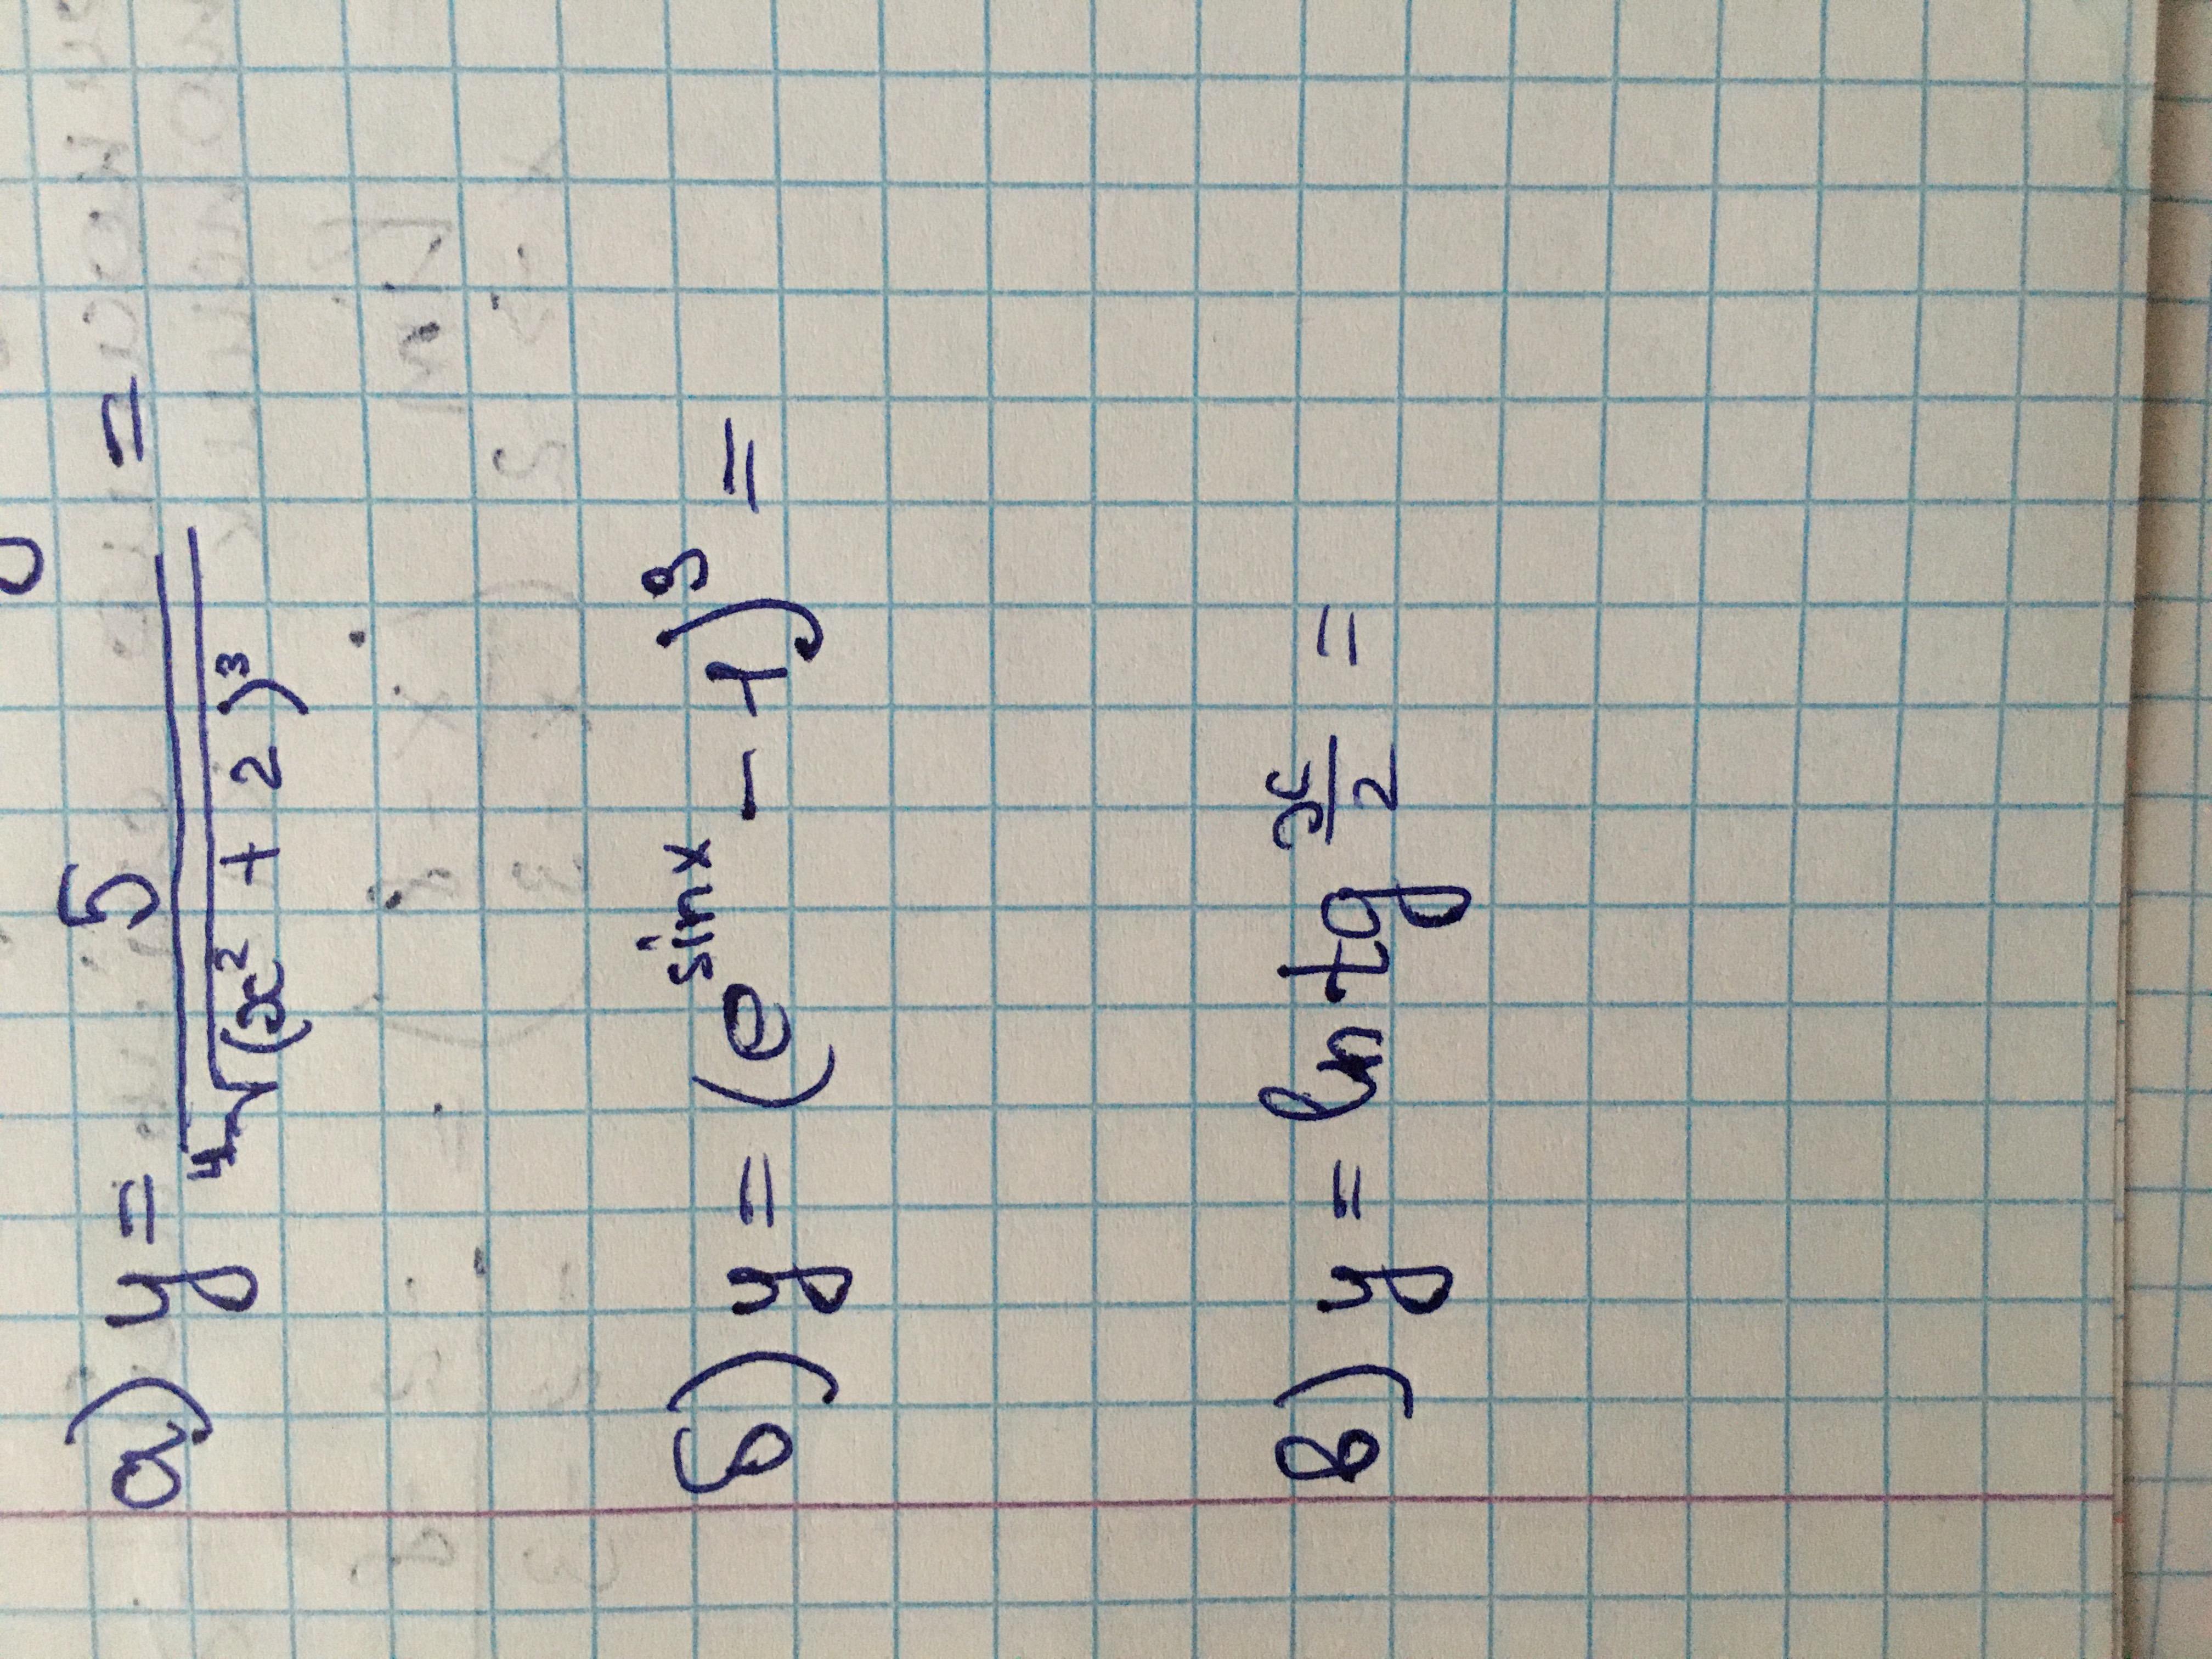 а) y = 5 / ⁴√(x² + 2)³ =
б) y = (e^sin x − 1)⁹ =
в) y = ln tg x/2 =